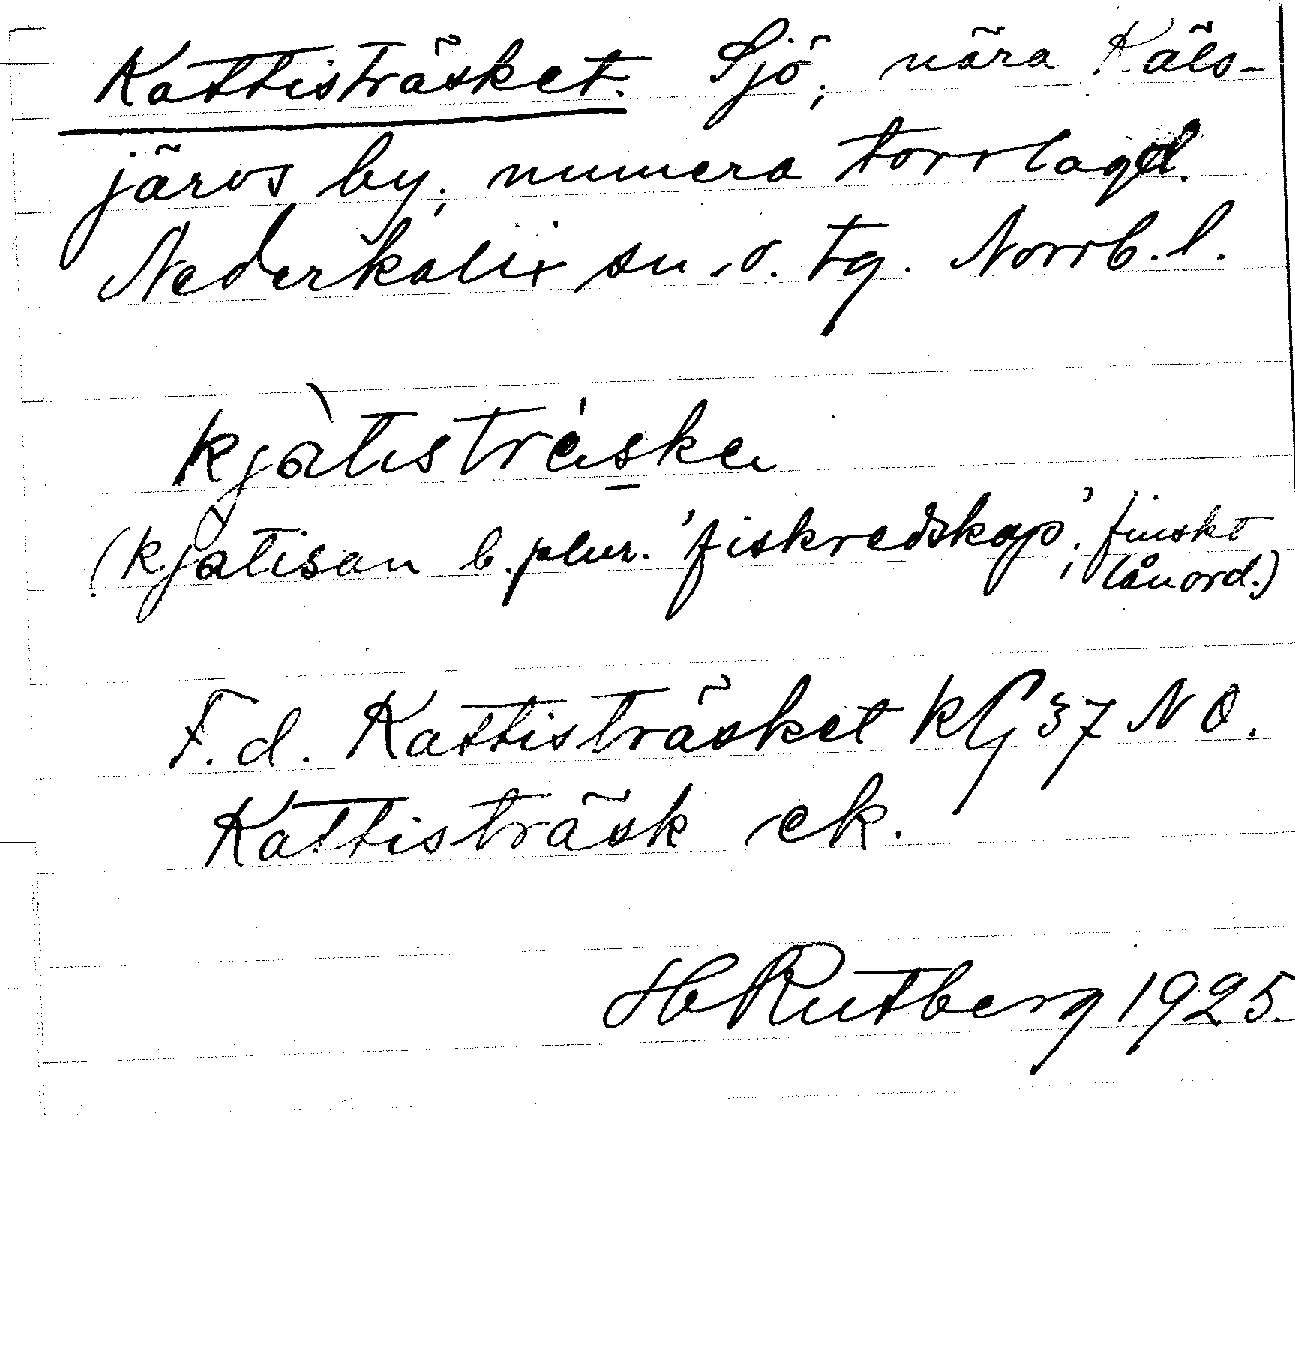 Kattisträsket. Sjö, nära Käls-
järvs by, numera torrlagd.
Nederkalix sn. o. tg. Norrb. l.
kjàtistréska
(kjàtisan b. plur. 'fiskredskap', finskt
lånord.)
F. d. Kattisträsket kG 37 NO.
Kattisträsk ek.
H Rutberg 1925.